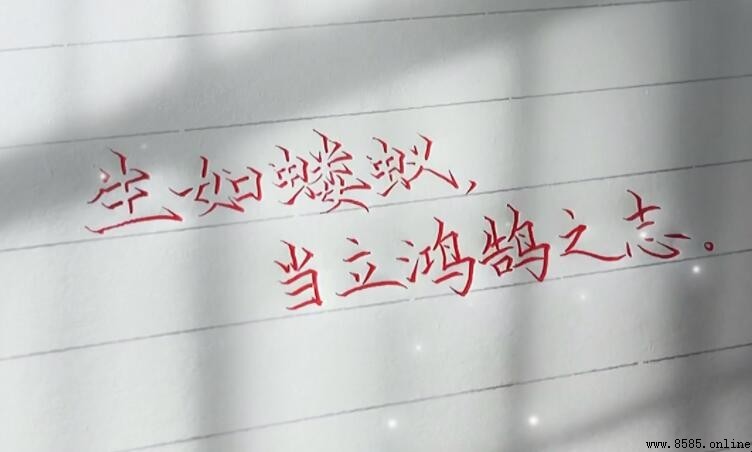 生如蝼蚁，
当立鸿鹄之志。
www.8585.online